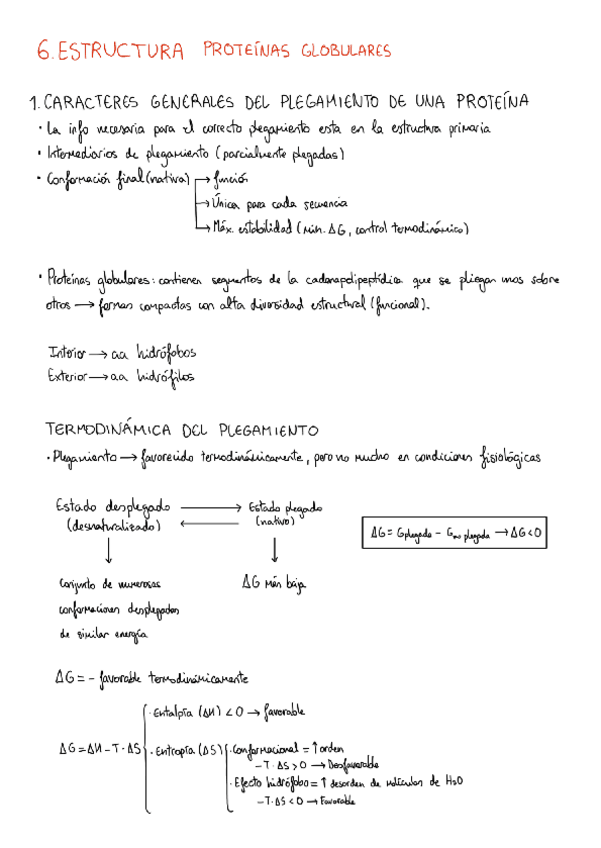 6. ESTRUCTURA PROTEÍNAS GLOBULARES
1. CARACTERES GENERALES DEL PLEGAMIENTO DE UNA PROTEÍNA
· La info necesaria para el correcto plegamiento esta en la estructura primaria
· Intermediarios de plegamiento (parcialmente plegadas)
· Conformación final (nativa) → función
→ Única para cada secuencia
→ Máx. estabilidad (mín. ΔG, control termodinámico)
· Proteínas globulares: contienen segmentos de la cadena polipeptídica que se pliegan unos sobre
otros → formas compactas con alta diversidad estructural (funcional).
Interior → aa hidrófobos
Exterior → aa hidrófilos
TERMODINÁMICA DEL PLEGAMIENTO
· Plegamiento → favorecido termodinámicamente, pero no mucho en condiciones fisiológicas
Estado desplegado → Estado plegado
(desnaturalizado) ← (nativo)
ΔG = Gplegada - Gno plegada → ΔG < 0
Conjunto de numerosas ΔG más baja
conformaciones desplegadas
de similar energía
ΔG = - favorable termodinámicamente
· Entalpía (ΔH) < 0 → favorable
ΔG = ΔH - T · ΔS · Entropía (ΔS) · Conformacional = ↑ orden
- T · ΔS > 0 → Desfavorable
· Efecto hidrófobo = ↑ desorden de moléculas de H2O
- T · ΔS < 0 → Favorable